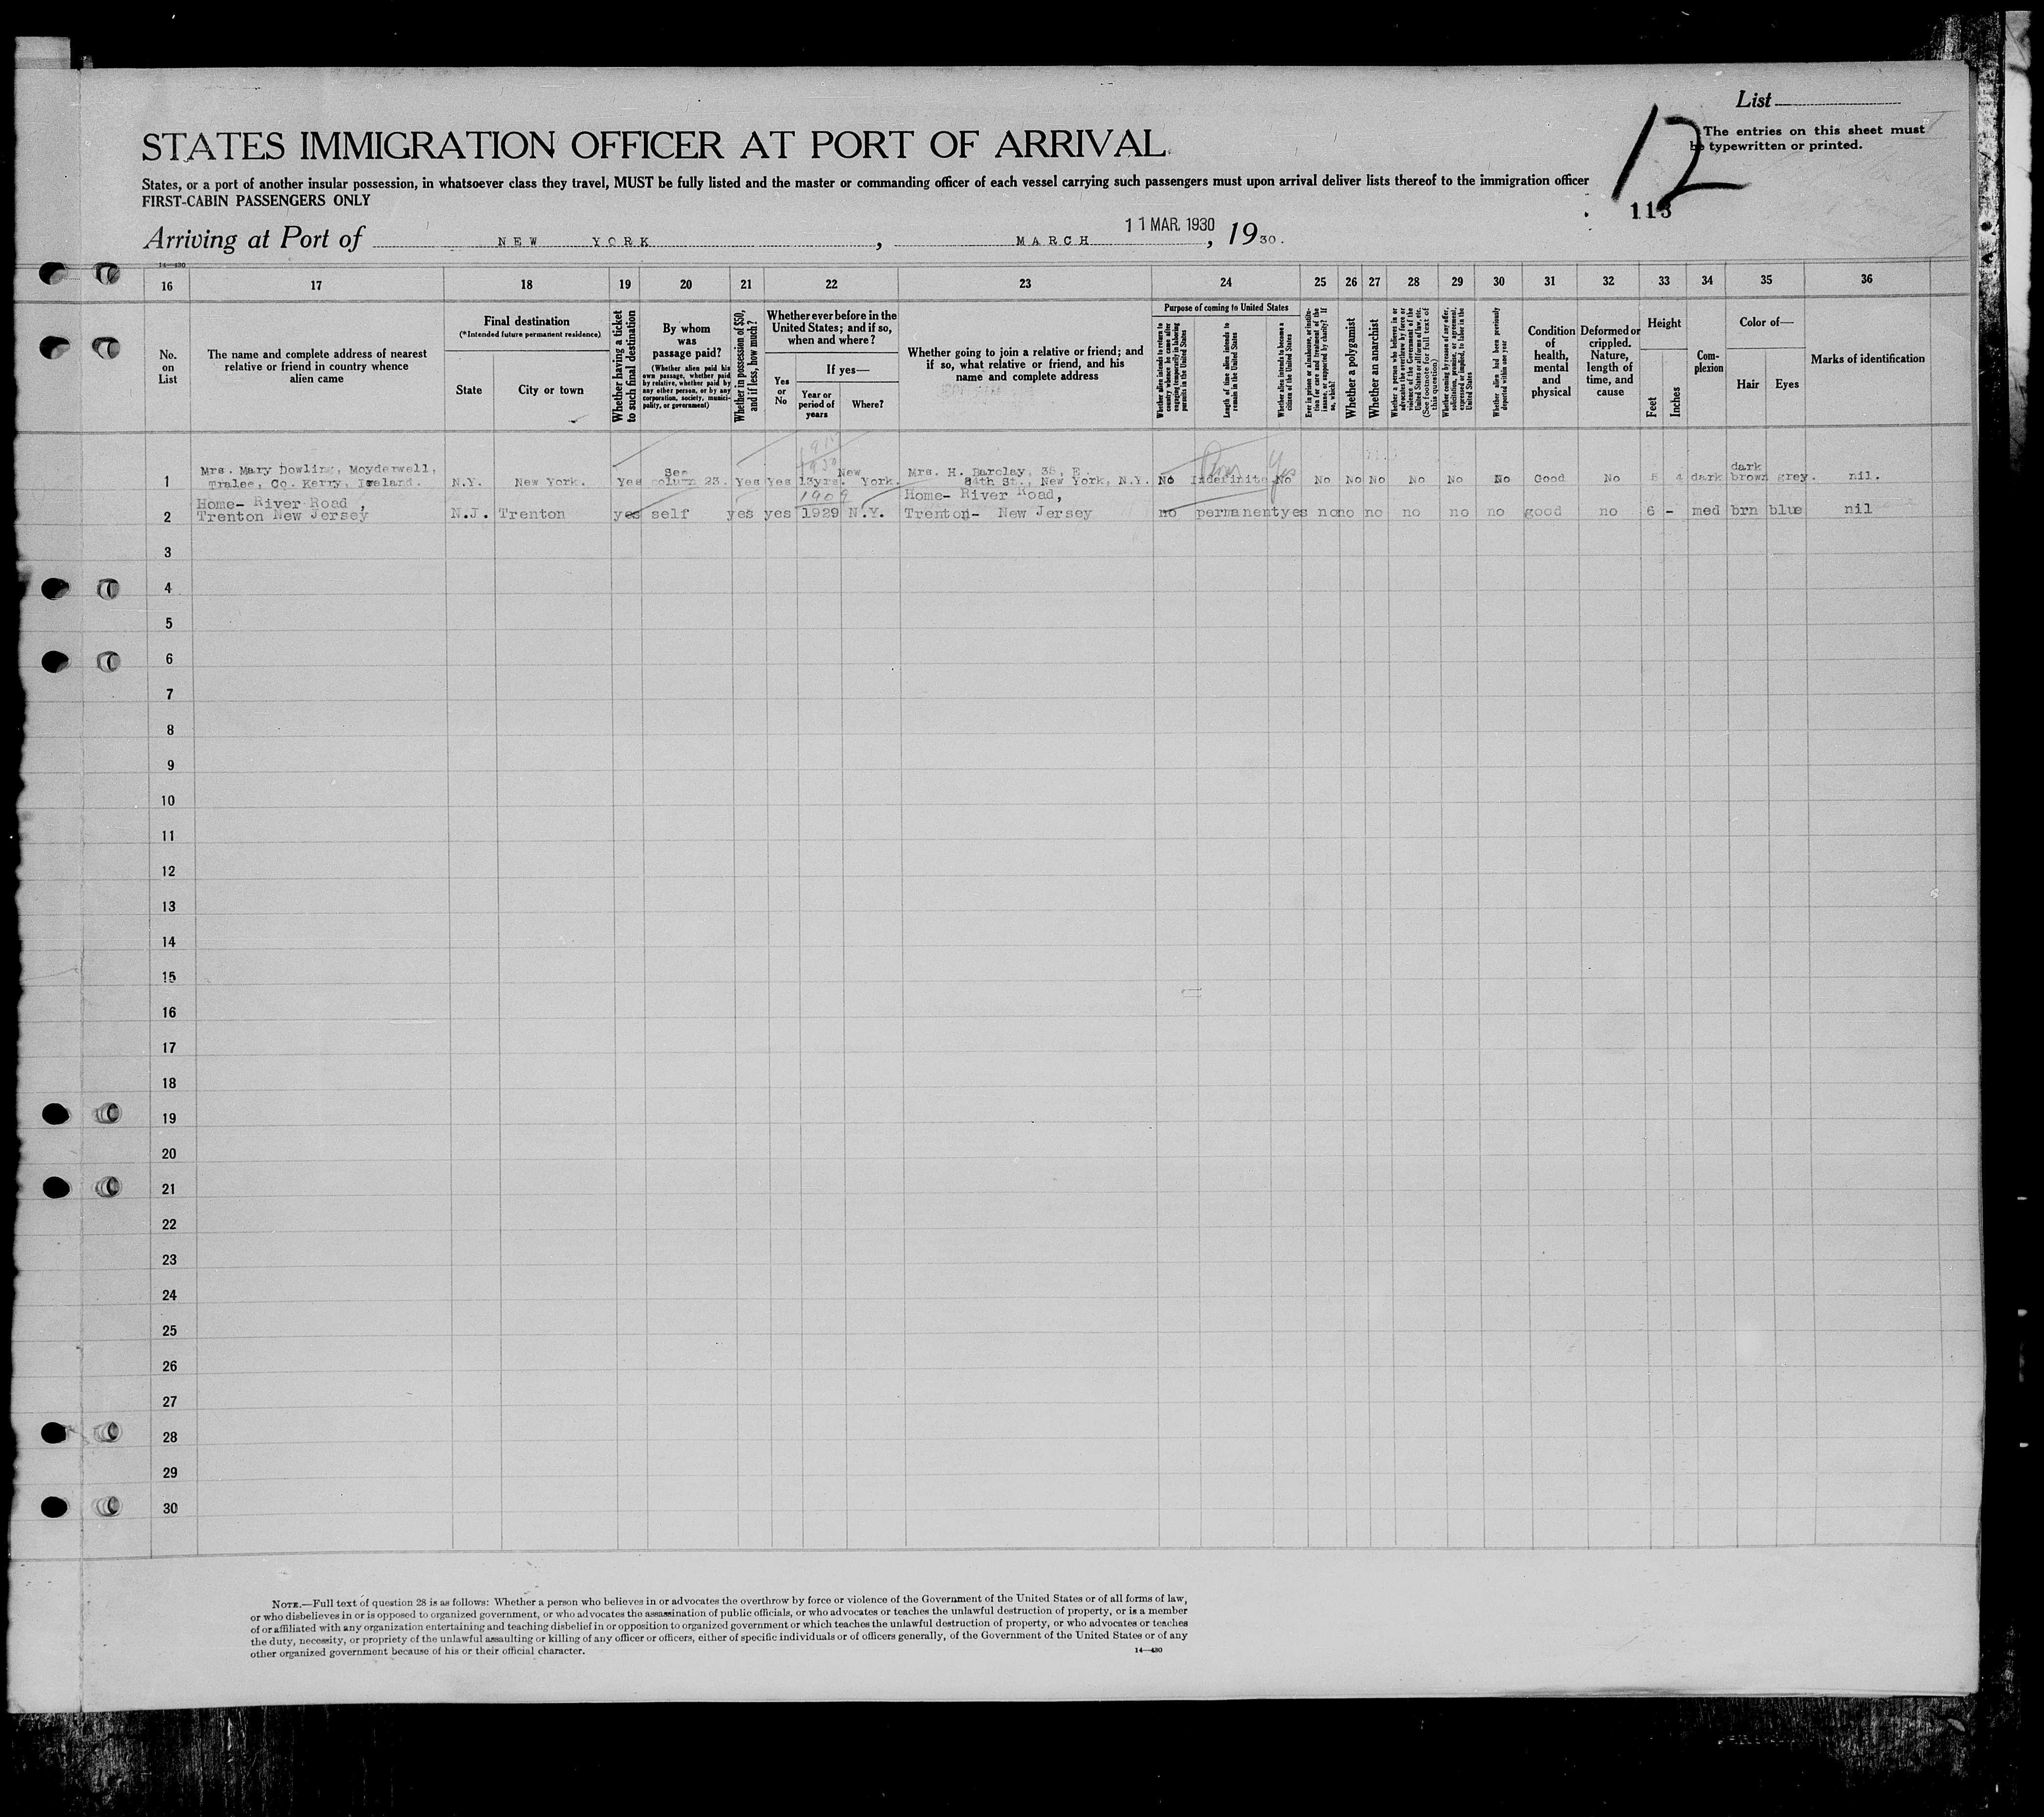 List
The entries on this sheet must
be typewritten or printed.
12
113
STATES IMMIGRATION OFFICER AT PORT OF ARRIVAL
States, or a port of another insular possession, in whatsoever class they travel, MUST be fully listed and the master or commanding officer of each vessel carrying such passengers must upon arrival deliver lists thereof to the immigration officer
FIRST-CABIN PASSENGERS ONLY
Arriving at Port of NEW YORK, MARCH 11 MAR. 1930, 1930.
14—430
16 17 18 19 20 21 22 23 24 25 26 27 28 29 30 31 32 33 34 35 36
No. on List
The name and complete address of nearest relative or friend in country whence alien came
Final destination
(*Intended future permanent residence)
State
City or town
Whether having a ticket to such final destination
By whom was passage paid?
(Whether alien paid his own passage, whether paid by relative, whether paid by any other person, or by any corporation, society, municipality, or government)
Whether in possession of $50, and if less, how much?
Whether ever before in the United States; and if so, when and where?
Yes or No
If yes—
Year or period of years
Where?
Whether going to join a relative or friend; and if so, what relative or friend, and his name and complete address
Purpose of coming to United States
Whether alien intends to return to country whence he came after engaging temporarily in laboring pursuits in the United States
Length of time alien intends to remain in the United States
Whether alien intends to become a citizen of the United States
Ever in prison or almshouse, or institution for care and treatment of the insane, or supported by charity? If so, which?
Whether a polygamist
Whether an anarchist
Whether a person who believes in or advocates the overthrow by force or violence of the Government of the United States or all forms of law, etc. (See footnote for full text of this question)
Whether coming by reason of any offer, solicitation, promise, or agreement, expressed or implied, to labor in the United States
Whether alien had been previously deported within one year
Condition of health, mental and physical
Deformed or crippled. Nature, length of time, and cause
Height
Feet
Inches
Complexion
Color of—
Hair
Eyes
Marks of identification
1 Mrs. Mary Dowling, Moyderwell, Tralee, Co. Kerry, Ireland. N.Y. New York. Yes See column 23. Yes Yes 13yrs. New York. Mrs. H. Barclay, 35, E. 84th St., New York, N.Y. No Indefinite No Yes No No No No No No Good No 5 4 dark dark brown grey. nil.
2 Home- River Road, Trenton New Jersey N.J. Trenton yes self yes yes 1909 1929 N.Y. Home- River Road, Trenton- New Jersey no permanent yes no no no no no no good no 6 - med brn blue nil
3
4
5
6
7
8
9
10
11
12
13
14
15
16
17
18
19
20
21
22
23
24
25
26
27
28
29
30
NOTE.—Full text of question 28 is as follows: Whether a person who believes in or advocates the overthrow by force or violence of the Government of the United States or of all forms of law,
or who disbelieves in or is opposed to organized government, or who advocates the assassination of public officials, or who advocates or teaches the unlawful destruction of property, or is a member
of or affiliated with any organization entertaining and teaching disbelief in or opposition to organized government or which teaches the unlawful destruction of property, or who advocates or teaches
the duty, necessity, or propriety of the unlawful assaulting or killing of any officer or officers, either of specific individuals or of officers generally, of the Government of the United States or of any
other organized government because of his or their official character.
14—430